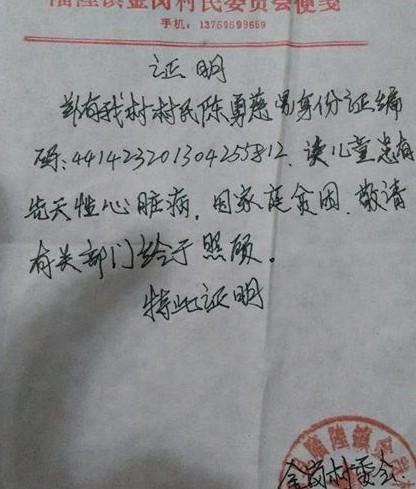 隍镇金岗村民委员会便笺
手机：13750599669
证明
兹有我村村民陈勇慈男身份证编
码：441423201304255812．该儿童患有
先天性心脏病，因家庭贫困．敬请
有关部门给于照顾。
特此证明
隍镇金
金岗村委会